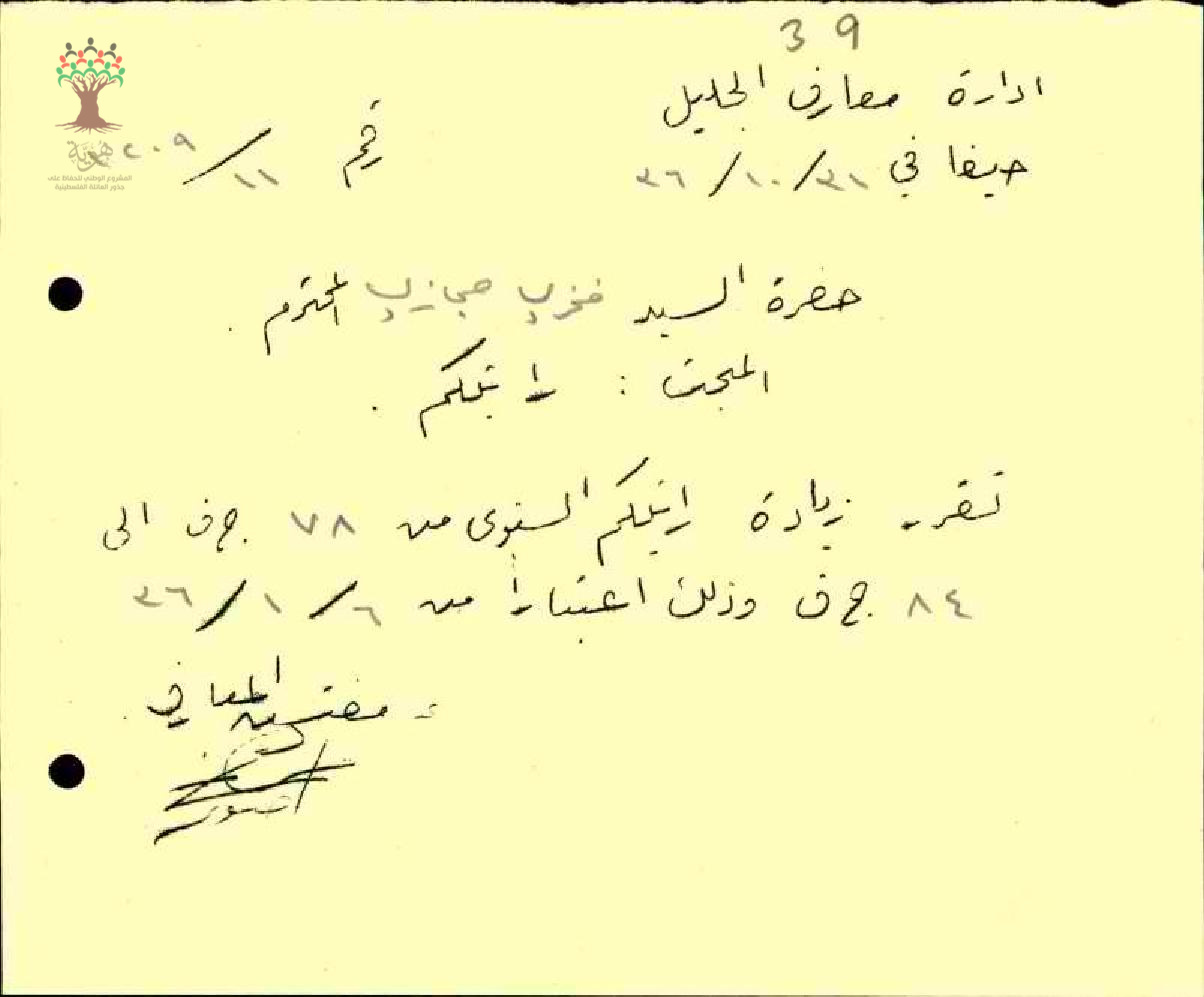 39
ادارة معارف الجليل
حيفا في ٣١/١٠/٣٦ رقم ١١/٢٠٩
هوية
المشروع الوطني للحفاظ على
جذور العائلة الفلسطينية
حضرة السيد فخري حجازي المحترم .
المبحث : راتبكم .
تقرر زيادة راتبكم السنوي من ٧٨ ج ف الى
٨٤ ج ف وذلك اعتباراً من ٣٦/١/٦
مفتش المعارف